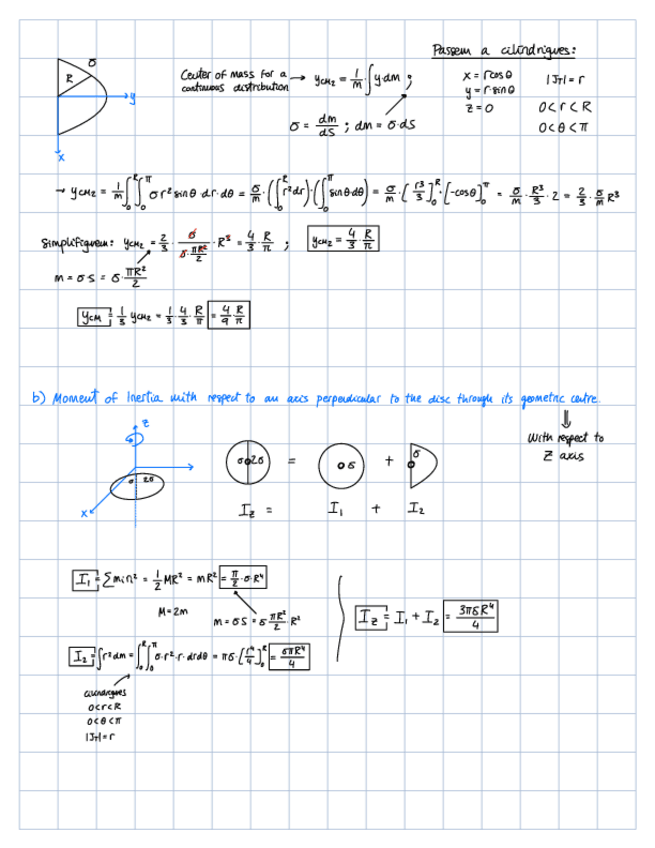 Passem a cilíndriques:
σ
R
y
x
Center of mass for a continuous distribution → y_CM2 = 1/m ∫ y dm ;
x = r cosθ
y = r·sinθ
z = 0
|J_T| = r
0 < r < R
0 < θ < π
σ = dm/dS ; dm = σ·dS
→ y_CM2 = 1/m ∫_0^R ∫_0^π σ r² sinθ·dr·dθ = σ/m · (∫_0^R r² dr) · (∫_0^π sinθ·dθ) = σ/m · [r³/3]_0^R · [-cosθ]_0^π = σ/m · R³/3 · 2 = 2/3 · σ/m R³
Simplifiquem: y_CM2 = 2/3 · σ/(σ·πR²/2) · R³ = 4/3 · R/π ; y_CM2 = 4/3 R/π
m = σ·S = σ·πR²/2
y_CM = 1/3 y_CM2 = 1/3 · 4/3 · R/π = 4/9 R/π
b) Moment of Inertia with respect to an axis perpendicular to the disc through its geometric centre.
⇓
With respect to
Z axis
z
x
σ 2σ
σ 2σ = σ + σ
I_z = I_1 + I_2
I_1 = ∑ m_i r_i² = 1/2 MR² = mR² = π/2 · σ·R⁴
M = 2m
m = σS = σ πR²/2 · R²
I_2 = ∫ r² dm = ∫_0^R ∫_0^π σ·r²·r·drdθ = πσ·[r⁴/4]_0^R = σπR⁴/4
cilíndriques
0 < r < R
0 < θ < π
|J_T| = r
I_z = I_1 + I_2 = 3πσR⁴/4